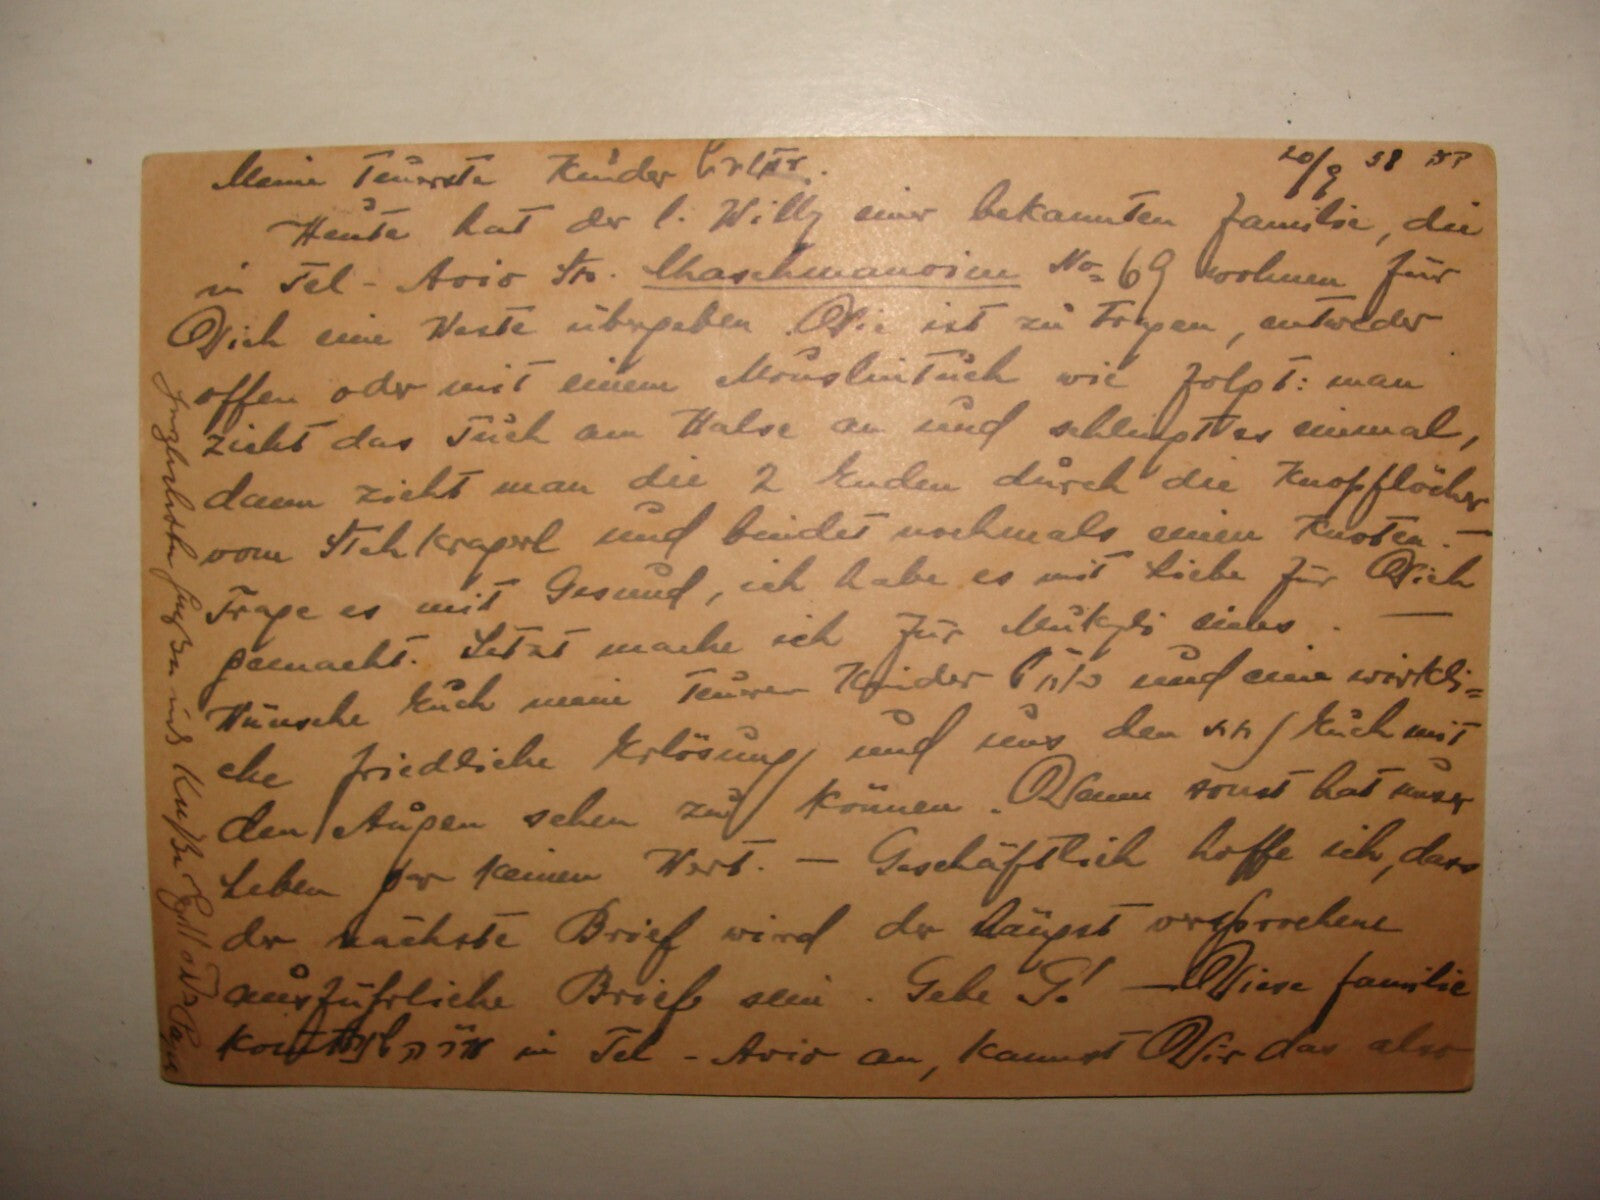 20/9 38
Meine Teuerste Kinder
Heute hat der l. Willy einer bekannten Familie, die
in Tel-Aviv Str. Chaschmanoim No 69 wohnen für
Dich eine Weste übergeben. Die ist zu tragen, entweder
offen oder mit einem Mouslintuch wie folgt: man
zieht das Tuch am Halse an und schlingt es einmal,
dann zieht man die 2 Enden durch die Knopflöcher
vom und bindet nochmals einen Knoten. —
Trage es mit Gesund, ich habe es mit Liebe für Dich
gemacht. Jetzt mache ich für eines. —
Wünsche Euch meine Teuren Kinder und eine wirkli=
che friedliche Erlösung und uns den Euch mit
den Augen sehen zu können. Denn sonst hat unser
Leben gar keinen Wert. — Geschäftlich hoffe ich, dass
der nächste Brief wird der längst versprochene
ausführliche Brief sein. Gebe G! — Diese Familie
kommt in Tel-Aviv an, kannst Dir das also
Küße Papa